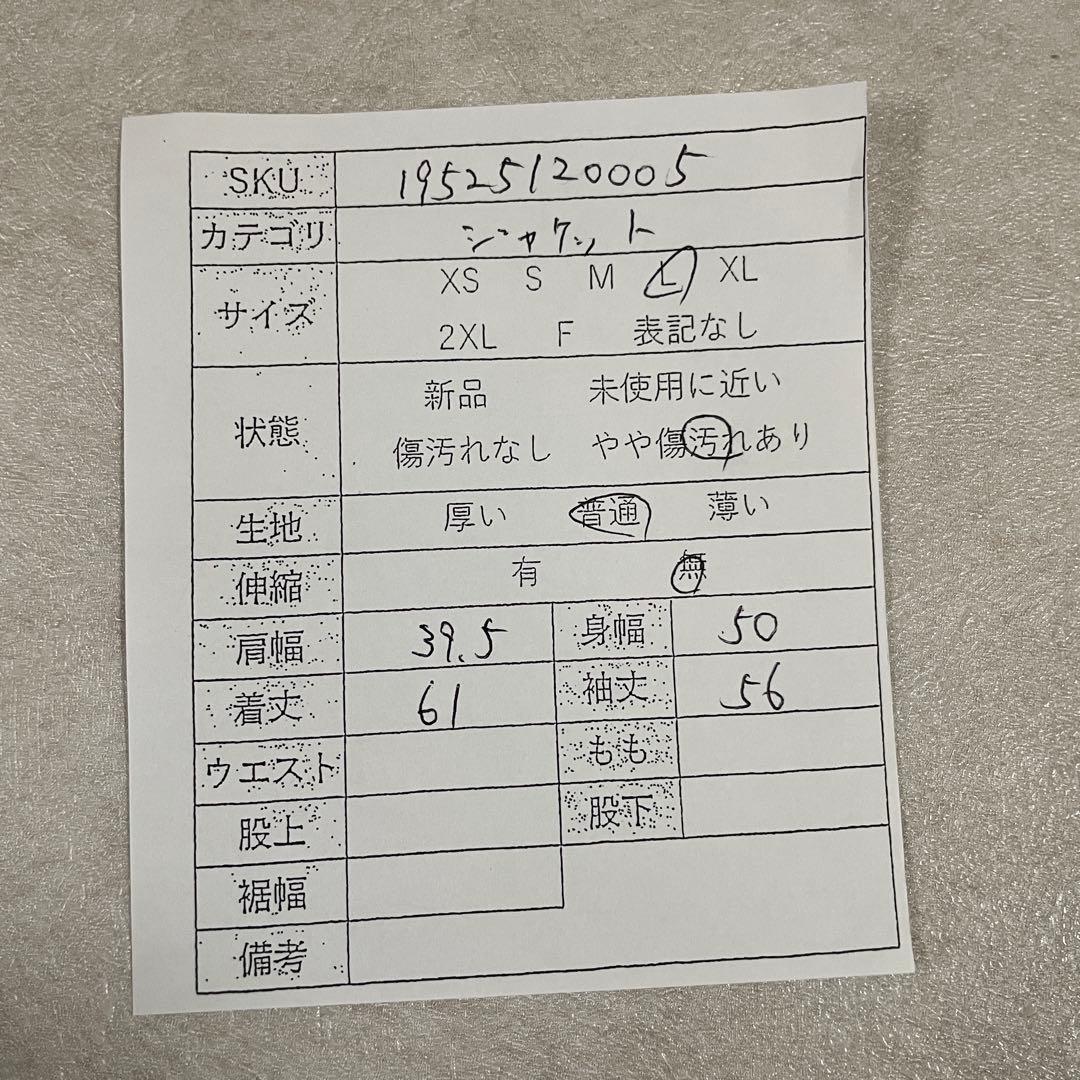 SKU 19525120005
カテゴリ ジャケット
サイズ XS S M L XL
2XL F 表記なし
状態 新品 未使用に近い
傷汚れなし やや傷汚れあり
生地 厚い 普通 薄い
伸縮 有 無
肩幅 39.5 身幅 50
着丈 61 袖丈 56
ウエスト もも
股上 股下
裾幅
備考